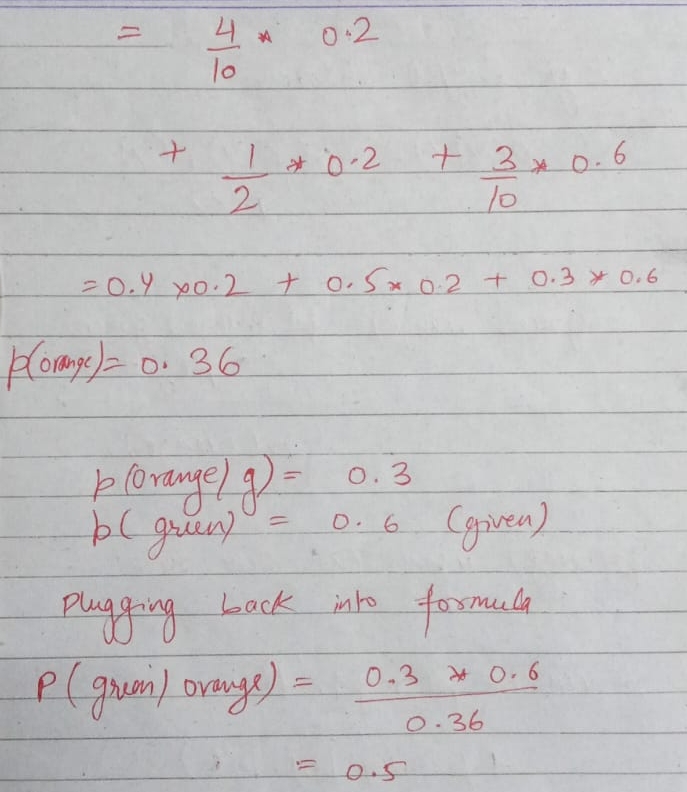 = 4/10 * 0.2
+ 1/2 * 0.2 + 3/10 * 0.6
= 0.4 x0.2 + 0.5* 0.2 + 0.3 * 0.6
p(orange)= 0.36
p(orange/g) = 0.3
p(green) = 0.6 (given)
plugging back into formula
P(green/orange) = 0.3 * 0.6 / 0.36
= 0.5